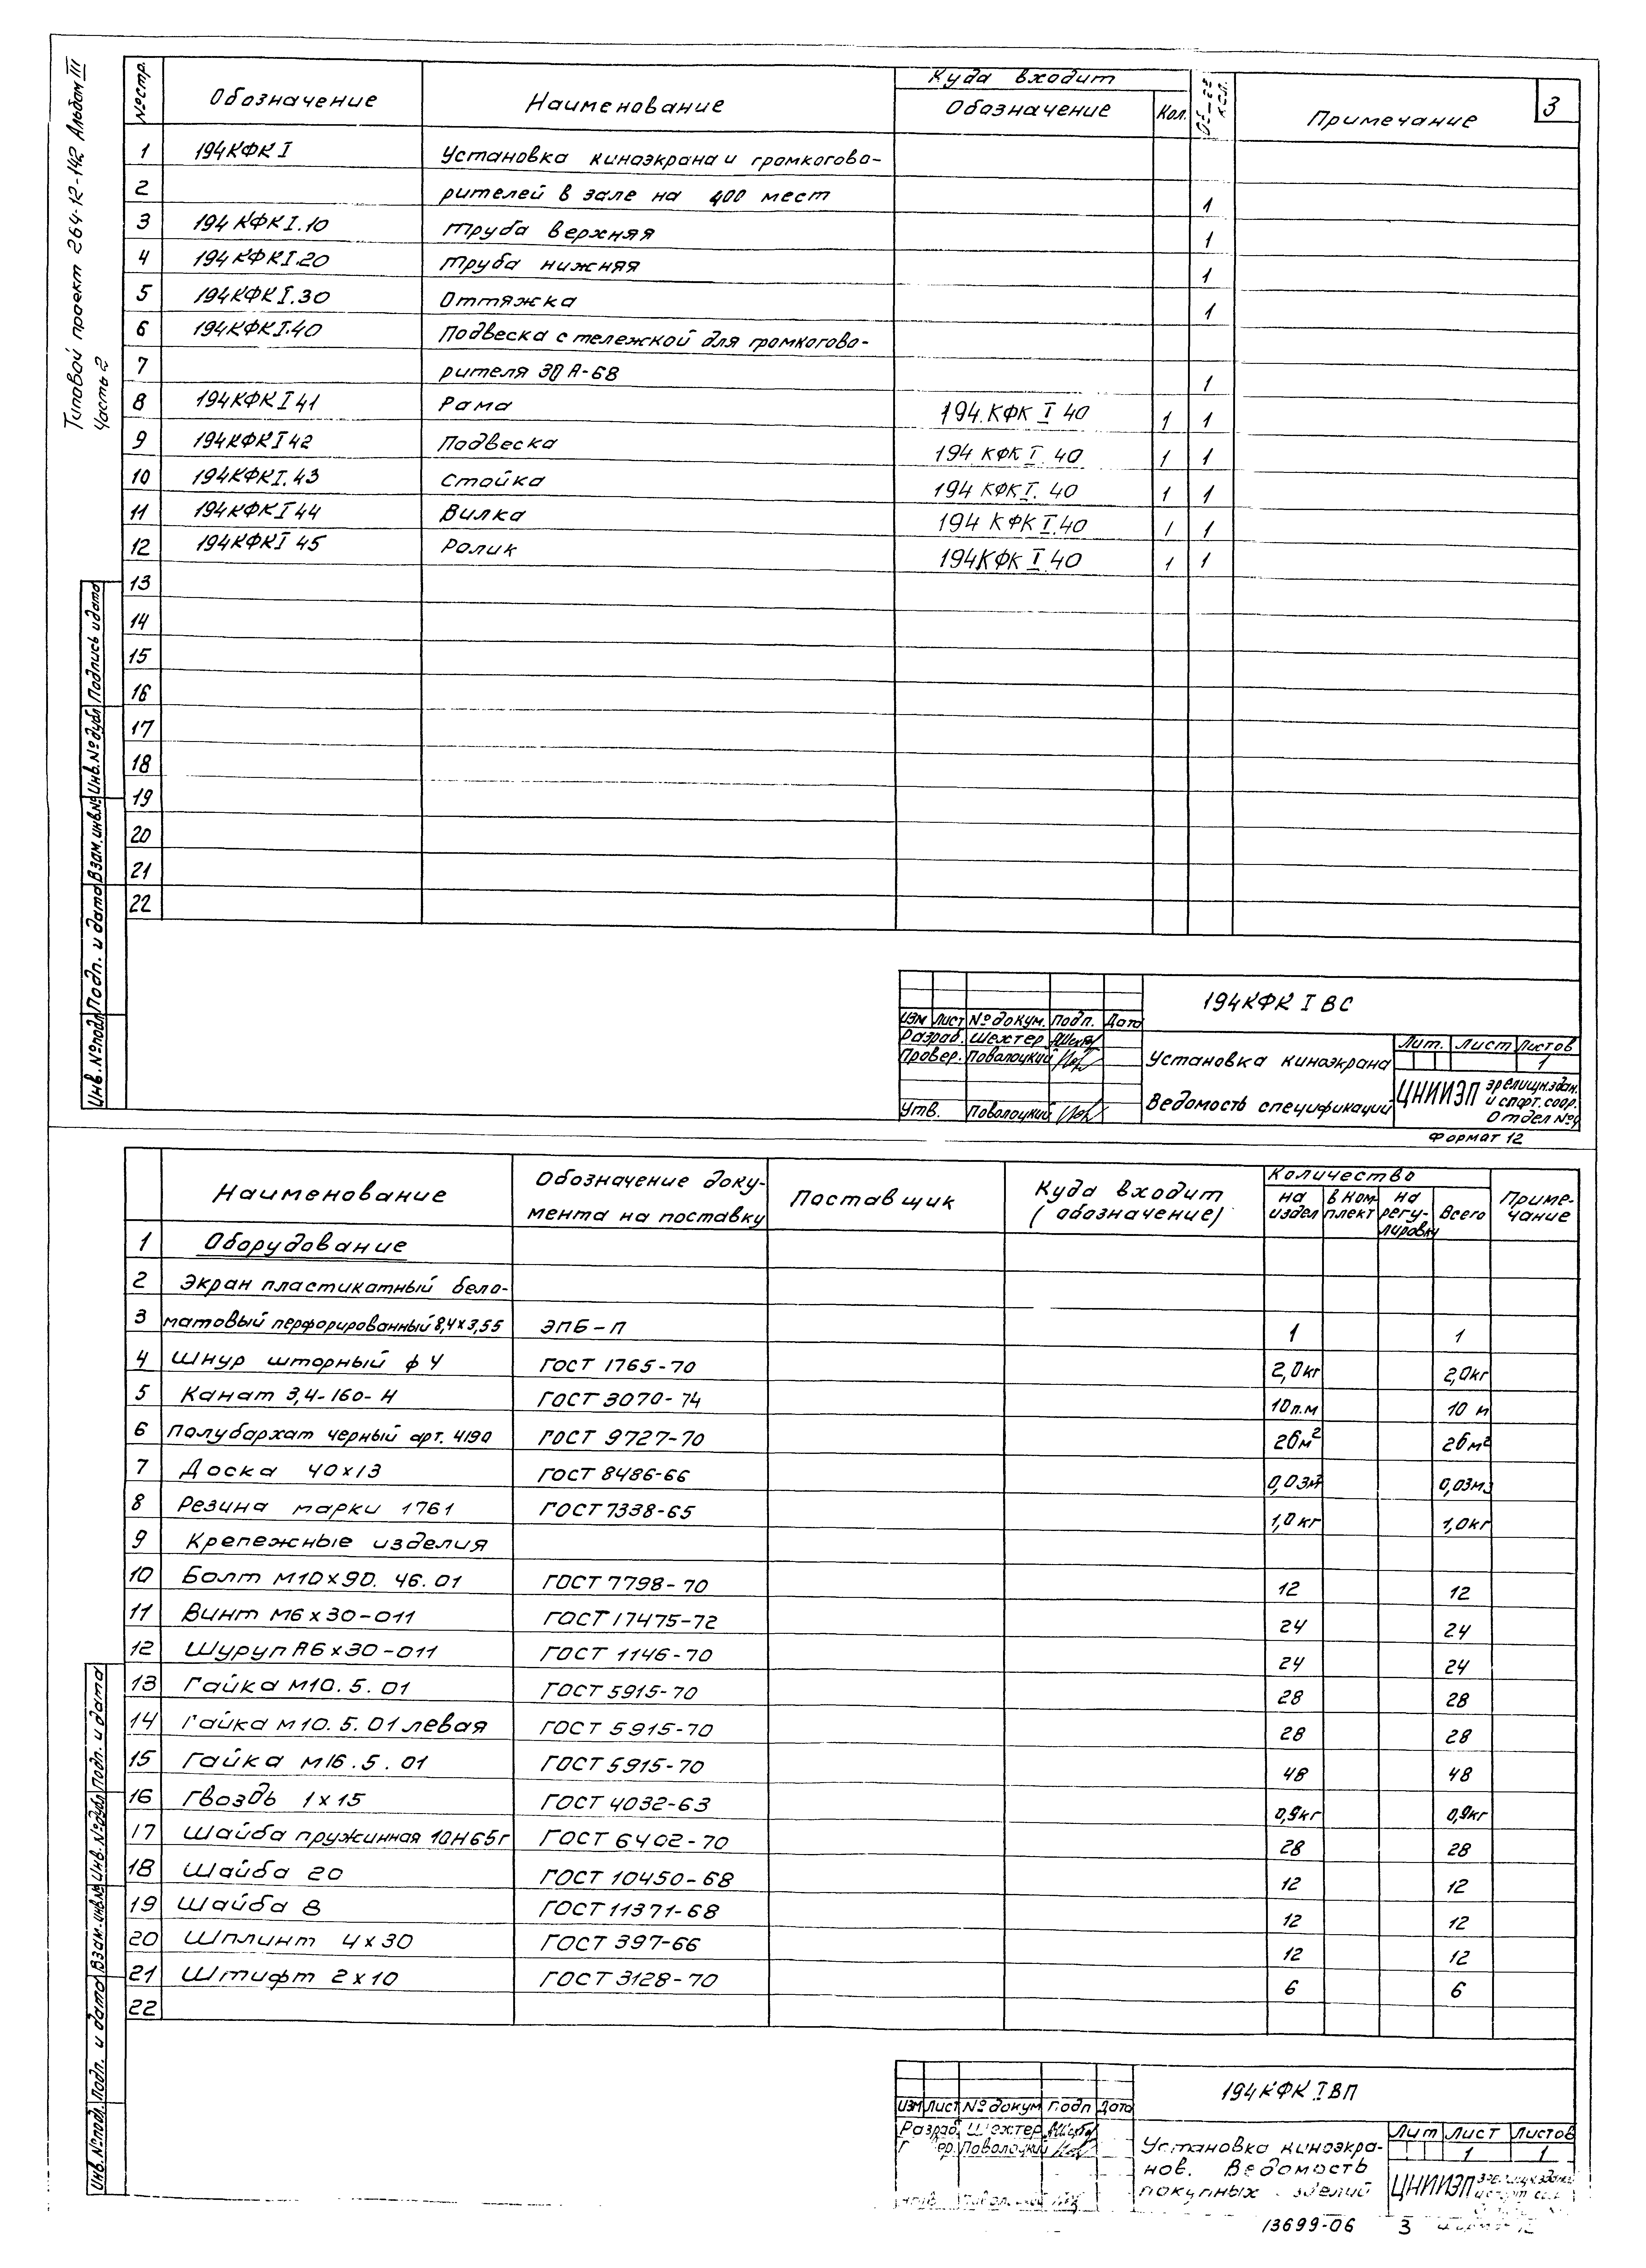 Типовой проект 264-12-142 Альбом III
Часть 2
3
№ стр. Обозначение Наименование Куда входит Примечание
Обозначение Кол.
1 194КФК I Установка киноэкрана и громкогово-
2 рителей в зале на 400 мест 1
3 194 КФК I.10 Труба верхняя 1
4 194 КФК I.20 Труба нижняя 1
5 194КФК I.30 Оттяжка 1
6 194КФК I.40 Подвеска с тележкой для громкогово-
7 рителя 30 А-68 1
8 194КФК I 41 Рама 194.КФК I 40 1 1
9 194КФК I 42 Подвеска 194 КФК I. 40 1 1
10 194КФК I. 43 Стойка 194 КФК I. 40 1 1
11 194КФК I 44 Вилка 194 КФК I.40 1 1
12 194КФК I 45 Ролик 194КФК I.40 1 1
13
14
15
16
17
18
19
20
21
22
Инв.№подл Подп. и дата Взам.инв.№ Инв.№дубл Подпись и дата
194КФК I ВС
Изм Лист № докум. Подп. Дата
Разраб. Шехтер
Провер. Поволоцкий
Утв. Поволоцкий
Установка киноэкрана
Ведомость спецификаций
Лит. Лист Листов
1
ЦНИИЭП зрелищн.здан.
и спорт. соор.
Отдел №4
Формат 12
Наименование Обозначение доку- Поставщик Куда входит Количество Приме-
мента на поставку (обозначение) на издел в комплект на регулировку Всего чание
1 Оборудование
2 Экран пластикатный бело-
3 матовый перфорированный 8,4х3,55 ЭПБ-П 1 1
4 Шнур шторный ф 4 ГОСТ 1765-70 2,0кг 2,0кг
5 Канат 3,4-160-Н ГОСТ 3070-74 10п.м 10 м
6 Полубархат черный арт. 4190 ГОСТ 9727-70 26м² 26м²
7 Доска 40х13 ГОСТ 8486-66 0,03м³ 0,03м3
8 Резина марки 1761 ГОСТ 7338-65 1,0кг 1,0кг
9 Крепежные изделия
10 Болт М10х90. 46. 01 ГОСТ 7798-70 12 12
11 Винт М6х30-011 ГОСТ 17475-72 24 24
12 Шуруп А6х30-011 ГОСТ 1146-70 24 24
13 Гайка М10. 5. 01 ГОСТ 5915-70 28 28
14 Гайка М10. 5. 01 левая ГОСТ 5915-70 28 28
15 Гайка М16. 5. 01 ГОСТ 5915-70 48 48
16 Гвоздь 1х15 ГОСТ 4032-63 0,9кг 0,9кг
17 Шайба пружинная 10Н65г ГОСТ 6402-70 28 28
18 Шайба 20 ГОСТ 10450-68 12 12
19 Шайба 8 ГОСТ 11371-68 12 12
20 Шплинт 4х30 ГОСТ 397-66 12 12
21 Штифт 2х10 ГОСТ 3128-70 6 6
22
Инв.№подл. Подп. и дата Взам.инв.№ Инв.№дубл Подп. и дата
194КФК I ВП
Изм Лист № докум Подп Дата
Разраб. Шехтер
Поволоцкий
Установка киноэкра-
нов. Ведомость
покупных зделий
Лит Лист Листов
1 1
ЦНИИЭП
13699-06 3